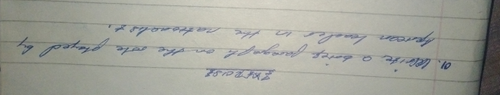 EXERCISE
01. Write a brief paragraph on the role played by
African leader in the